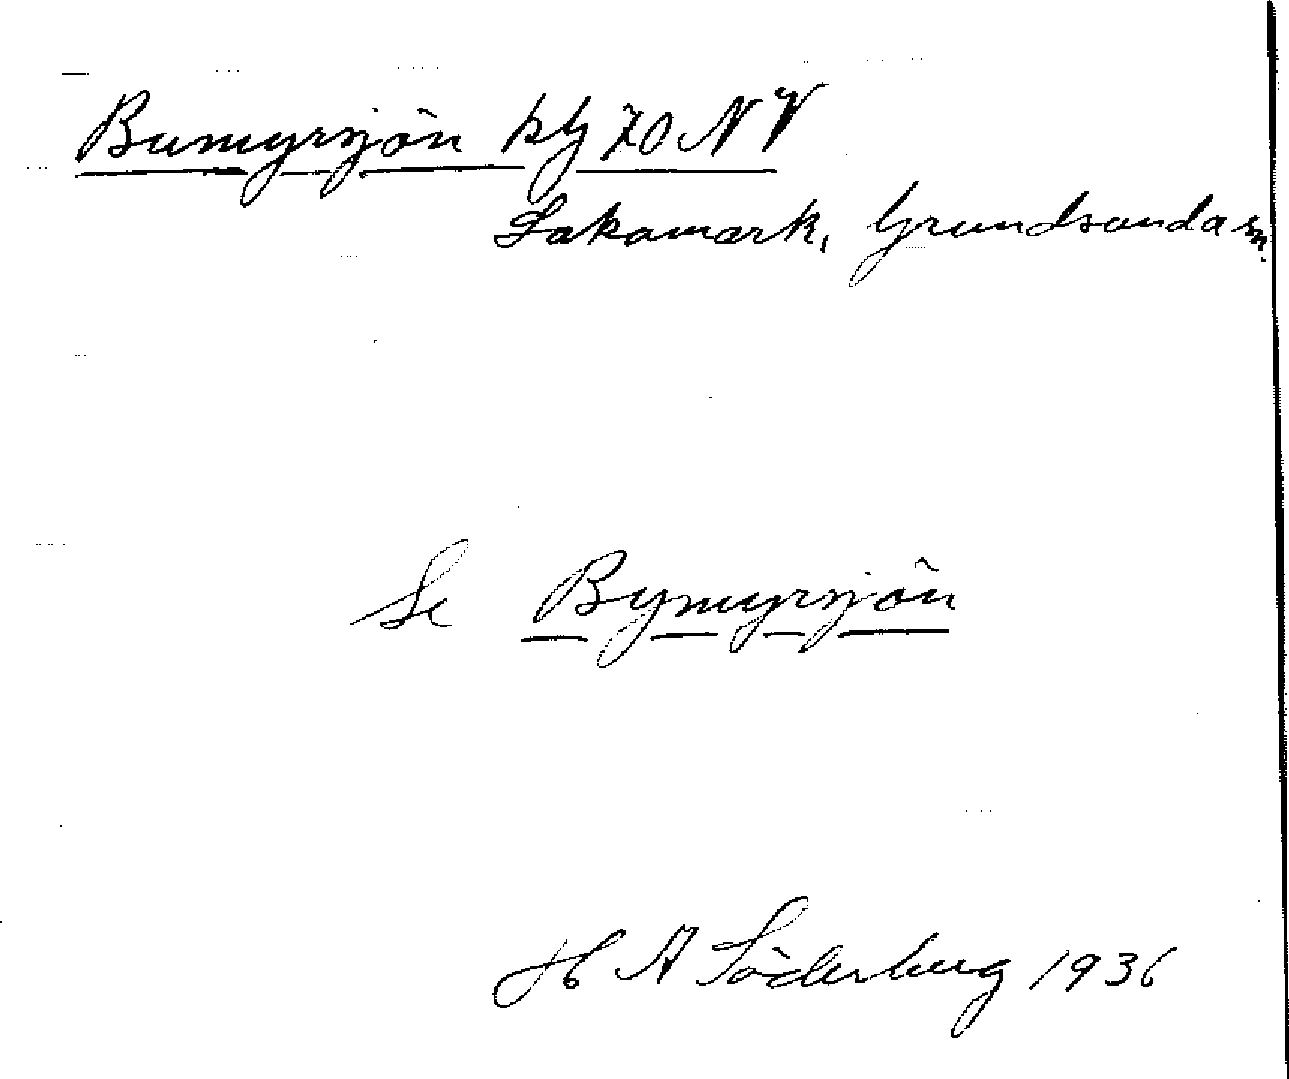 Bumyrsjön kbg 70 NV
Lakamark, Grundsunda sn.
Se Bymyrsjön
H A Söderberg 1936